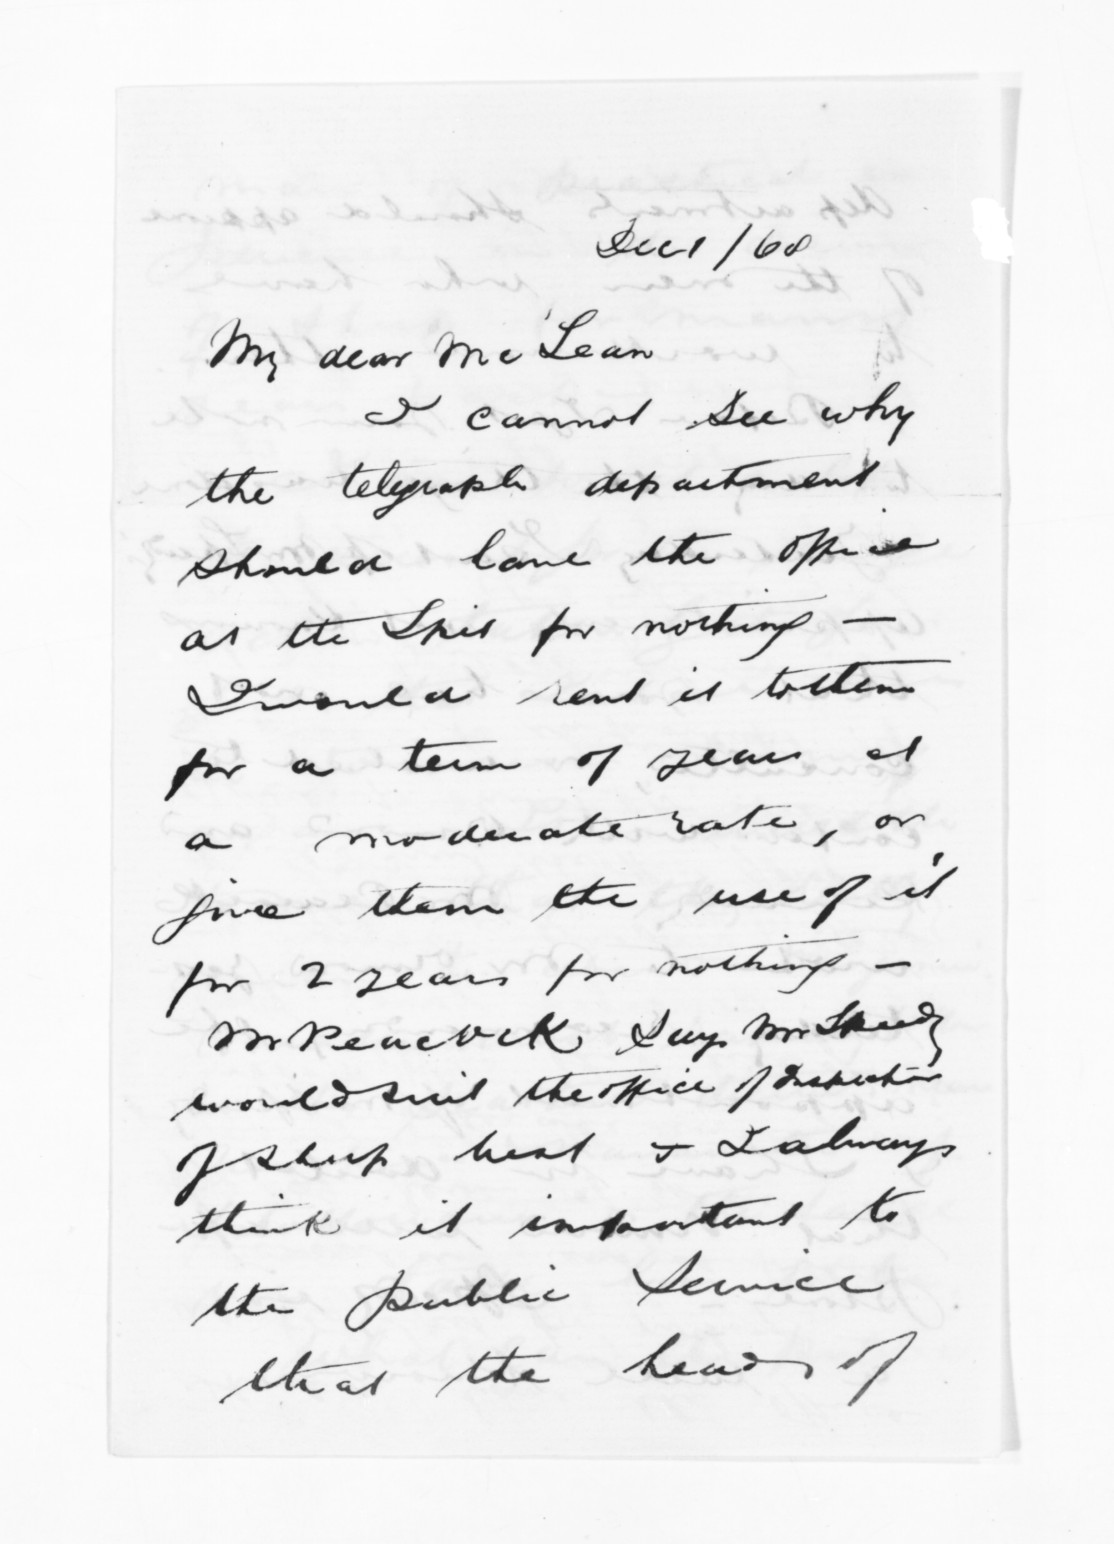 Dec 1 / 68
My dear McLean
I cannot see why
the telegraph department
should have the office
at the Spit for nothing —
I would rent it to them
for a term of years at
a moderate rate, or
give them the use of it
for 2 years for nothing —
Mr Peacock says Mr Speedy
would suit the office of Inspector
of Sheep best & I always
think it important to
the public Service
that the heads of